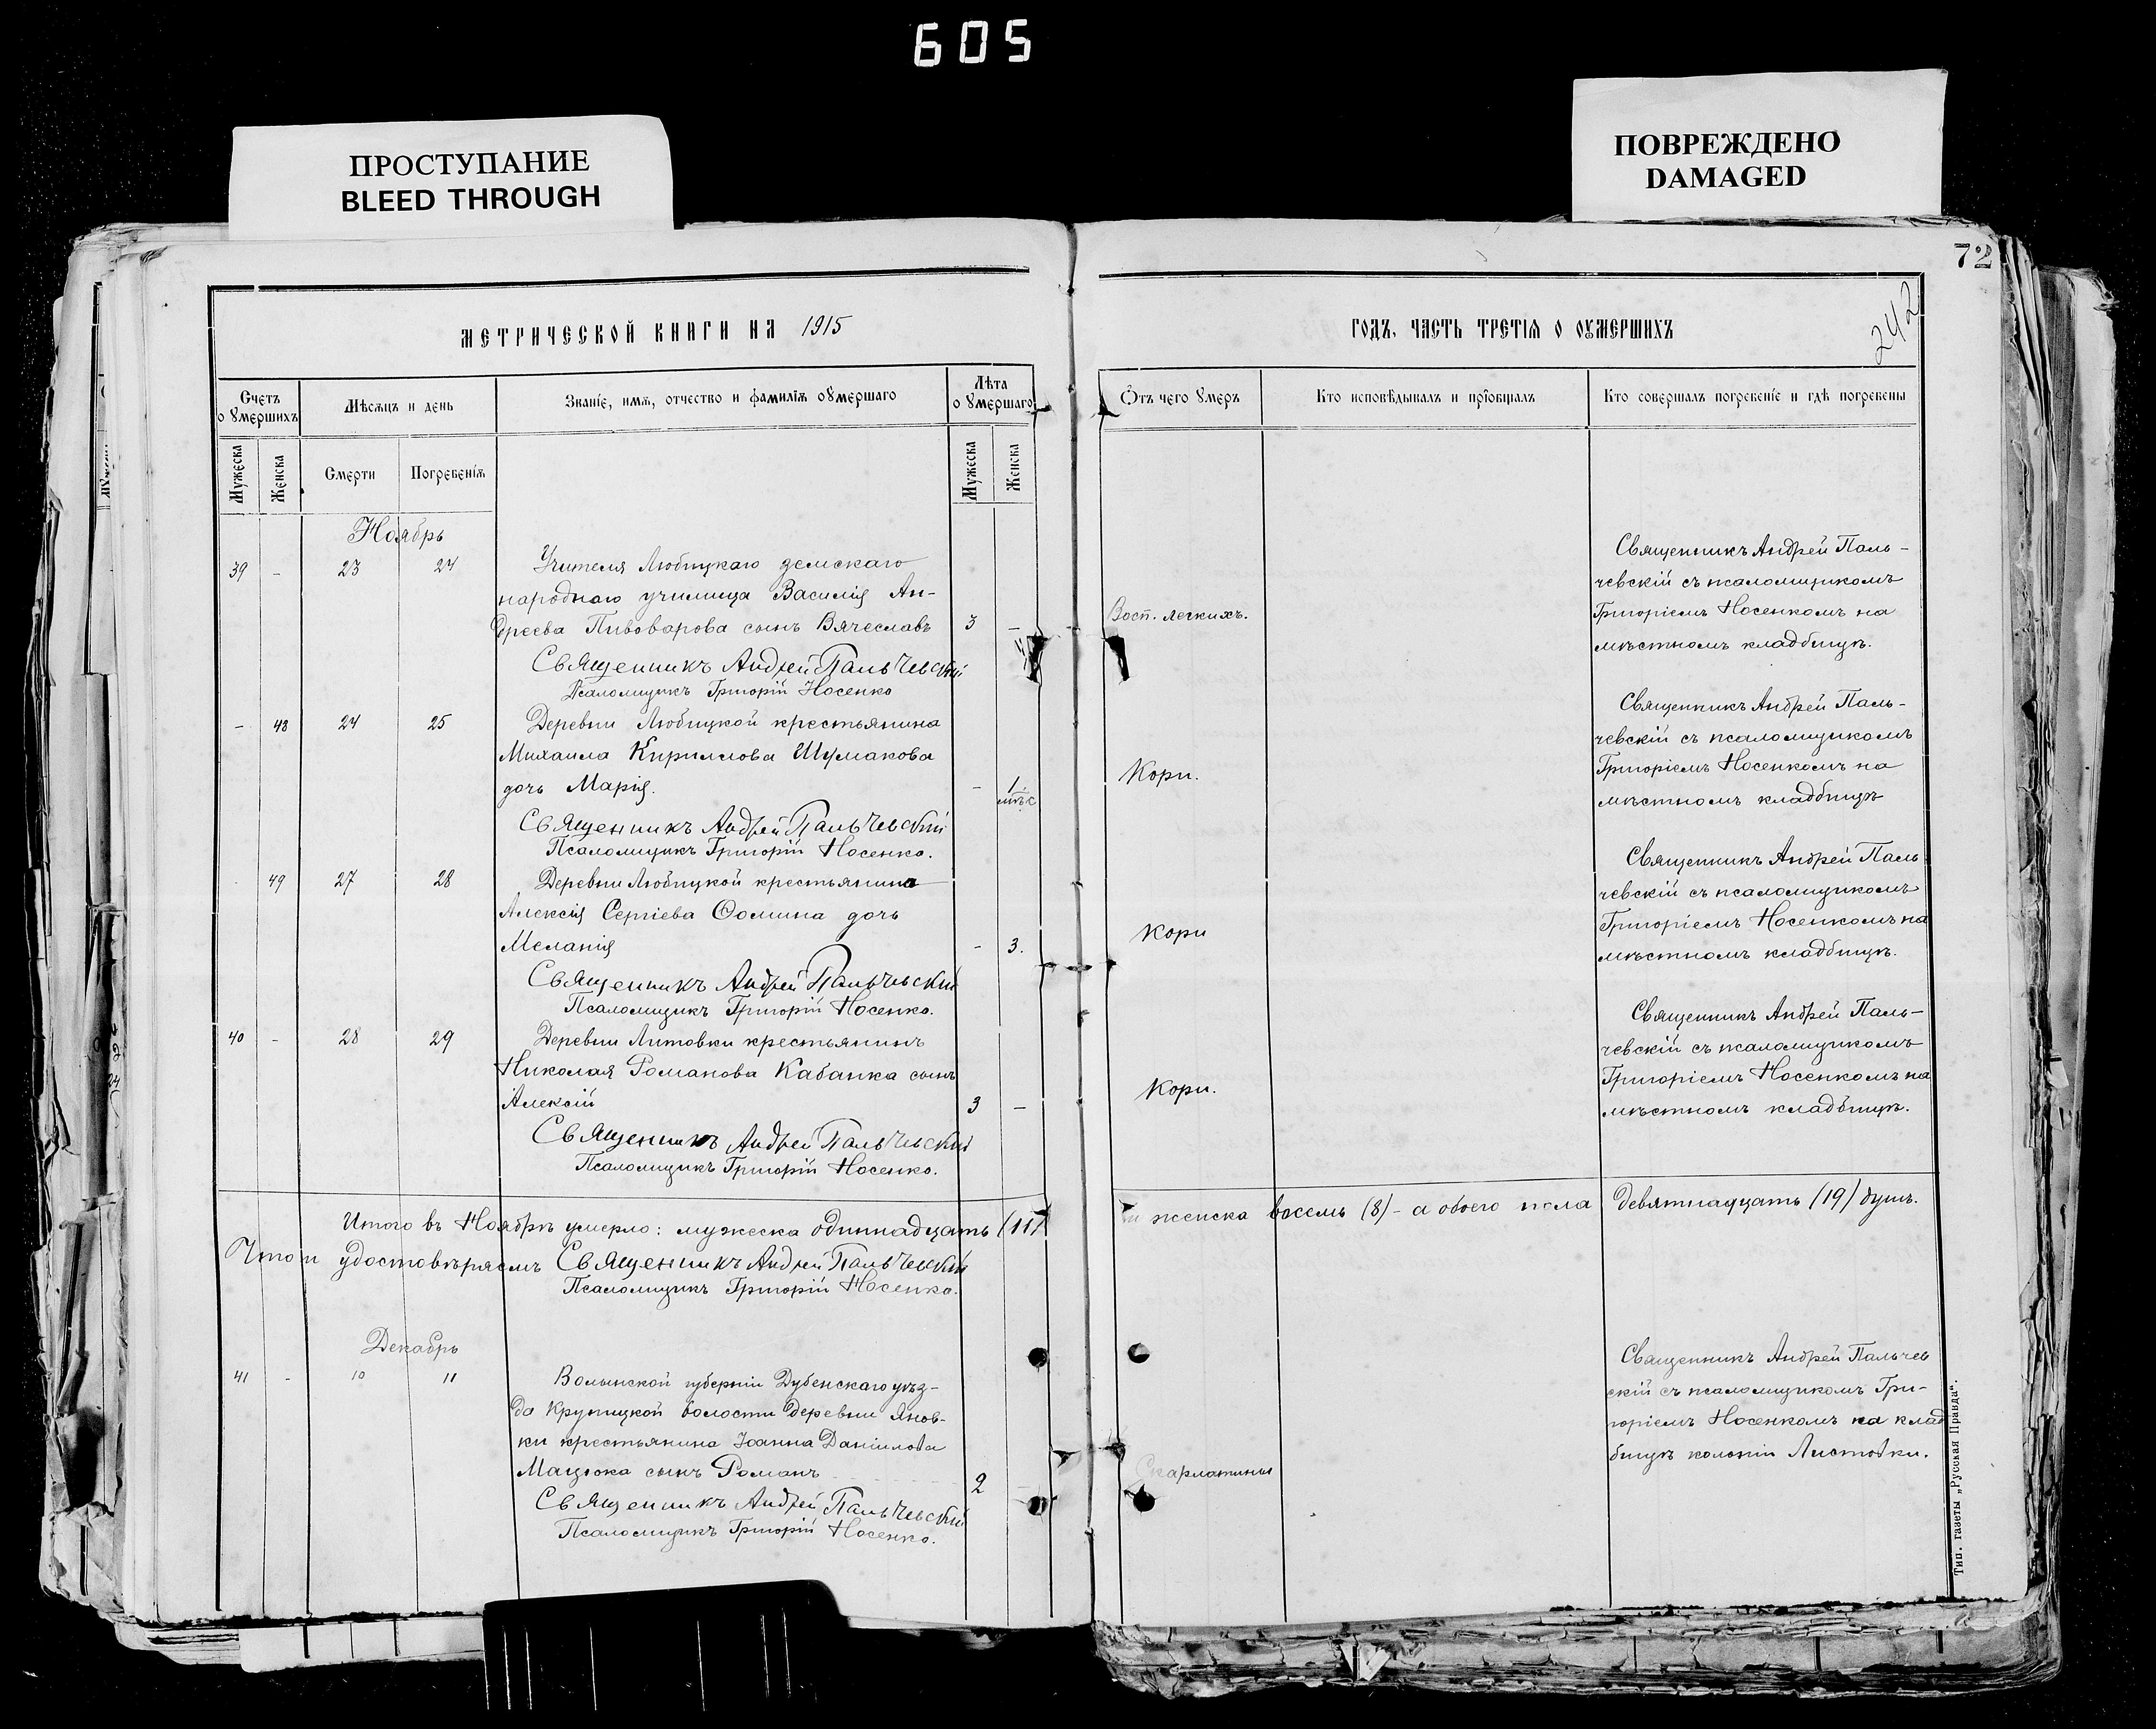 605
ПРОСТУПАНИЕ
BLEED THROUGH
ПОВРЕЖДЕНО
DAMAGED
72
242
МЕТРИЧЕСКОЙ КНИГИ НА 1915
ГОДЪ, ЧАСТЬ ТРЕТІЯ О ОУМЕРШИХЪ
Счетъ о умершихъ
Мѣсяцъ и день
Званіе, имя, отчество и фамилія оумершаго
Лѣта о умершаго
Отъ чего умеръ
Кто исповѣдывалъ и пріобщалъ
Кто совершалъ погребеніе и гдѣ погребены
Мужеска
Женска
Смерти
Погребенія
Мужеска
Женска
Ноябрь
39 - 23 24 Учителя Любицкаго земскаго
народнаго училища Василія Ан-
дреева Пивоварова сынъ Вячеславъ 3 -
Восп. легкихъ.
Священникъ Андрей Паль-
чевскій съ псаломщикомъ
Григоріемъ Носенкомъ на
мѣстномъ кладбищѣ.
Священникъ Андрей Пальчевскій
Псаломщикъ Григорій Носенко
- 48 24 25 Деревни Любицкой крестьянина
Михаила Кириллова Шумакова
дочь Марія. - 1 мѣс
Кори.
Священникъ Андрей Паль-
чевскій съ псаломщикомъ
Григоріемъ Носенкомъ на
мѣстномъ кладбищѣ
Священникъ Андрей Пальчевскій
Псаломщикъ Григорій Носенко.
49 27 28 Деревни Любицкой крестьянина
Алексія Сергіева Ѳомина дочь
Меланія - 3.
Кори
Священникъ Андрей Паль
чевскій съ псаломщикомъ
Григоріемъ Носенкомъ на
мѣстномъ кладбищѣ.
Священникъ Андрей Пальчевскій
Псаломщикъ Григорій Носенко.
40 - 28 29 Деревни Литовки крестьянинъ
Николая Романова Кабанка сынъ
Алексій 3 -
Кори.
Священникъ Андрей Паль-
чевскій съ псаломщикомъ
Григоріемъ Носенкомъ на
мѣстномъ кладбищѣ.
Священникъ Андрей Пальчевскій
Псаломщикъ Григорій Носенко.
Итого въ Ноябрѣ умерло: мужеска одиннадцать (11) и женска восемь (8) - а обоего пола девятнадцать (19) душъ.
Что и удостовѣряемъ Священникъ Андрей Пальчевскій
Псаломщикъ Григорій Носенко.
Декабрь
41 - 10 11 Волынской губерніи Дубенскаго уѣз-
да Крупицкой волости деревни Янов-
ки крестьянина Іоанна Даніилова
Мацюка сынъ Романъ 2
Скарлатины
Священникъ Андрей Пальчев
скій съ псаломщикомъ Гри-
горіемъ Носенкомъ на клад
бищѣ колоніи Листовки.
Священникъ Андрей Пальчевскій
Псаломщикъ Григорій Носенко.
Тип. газеты „Русская Правда“.